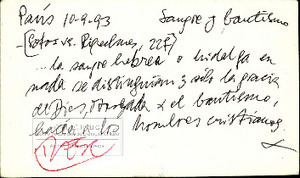 París 10-9-93 Sangre y bautismo
vs. Riquelme, 227)
... la sangre hebrea o hidalga en
nada se distinguían; sólo la gracia
de Dios, otorgada x el bautismo,
hacía a los hombres cristianos.